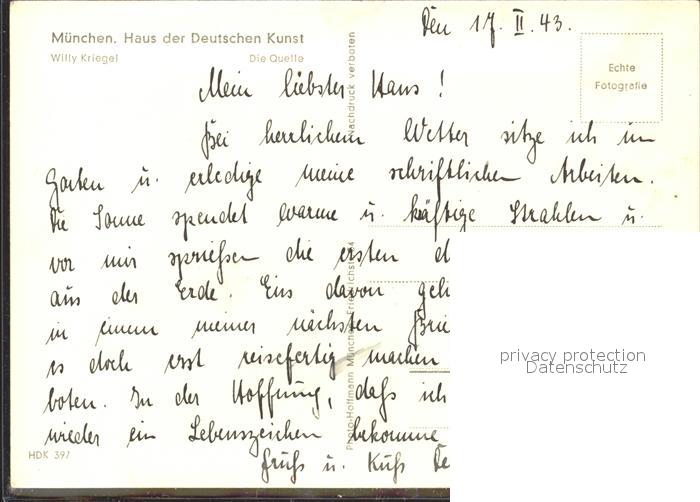 Den 17. II. 43.
München. Haus der Deutschen Kunst
Willy Kriegel Die Quelle
Echte
Fotografie
Nachdruck verboten
Mein liebster Hans!
Bei herrlichem Wetter sitze ich im
Garten u. erledige meine schriftlichen Arbeiten.
Die Sonne spendet warme u. kräftige Strahlen u.
vor mir spriessen die ersten
aus der Erde. Eins davon
in einem meiner nächsten
es doch erst reisefertig machen
boten. In der Hoffnung, dass ich
wieder ein Lebenszeichen bekomme
Gruss u. Kuss
Photo-Hoffmann München Friedrichstr.
HDK 397
privacy protection
Datenschutz